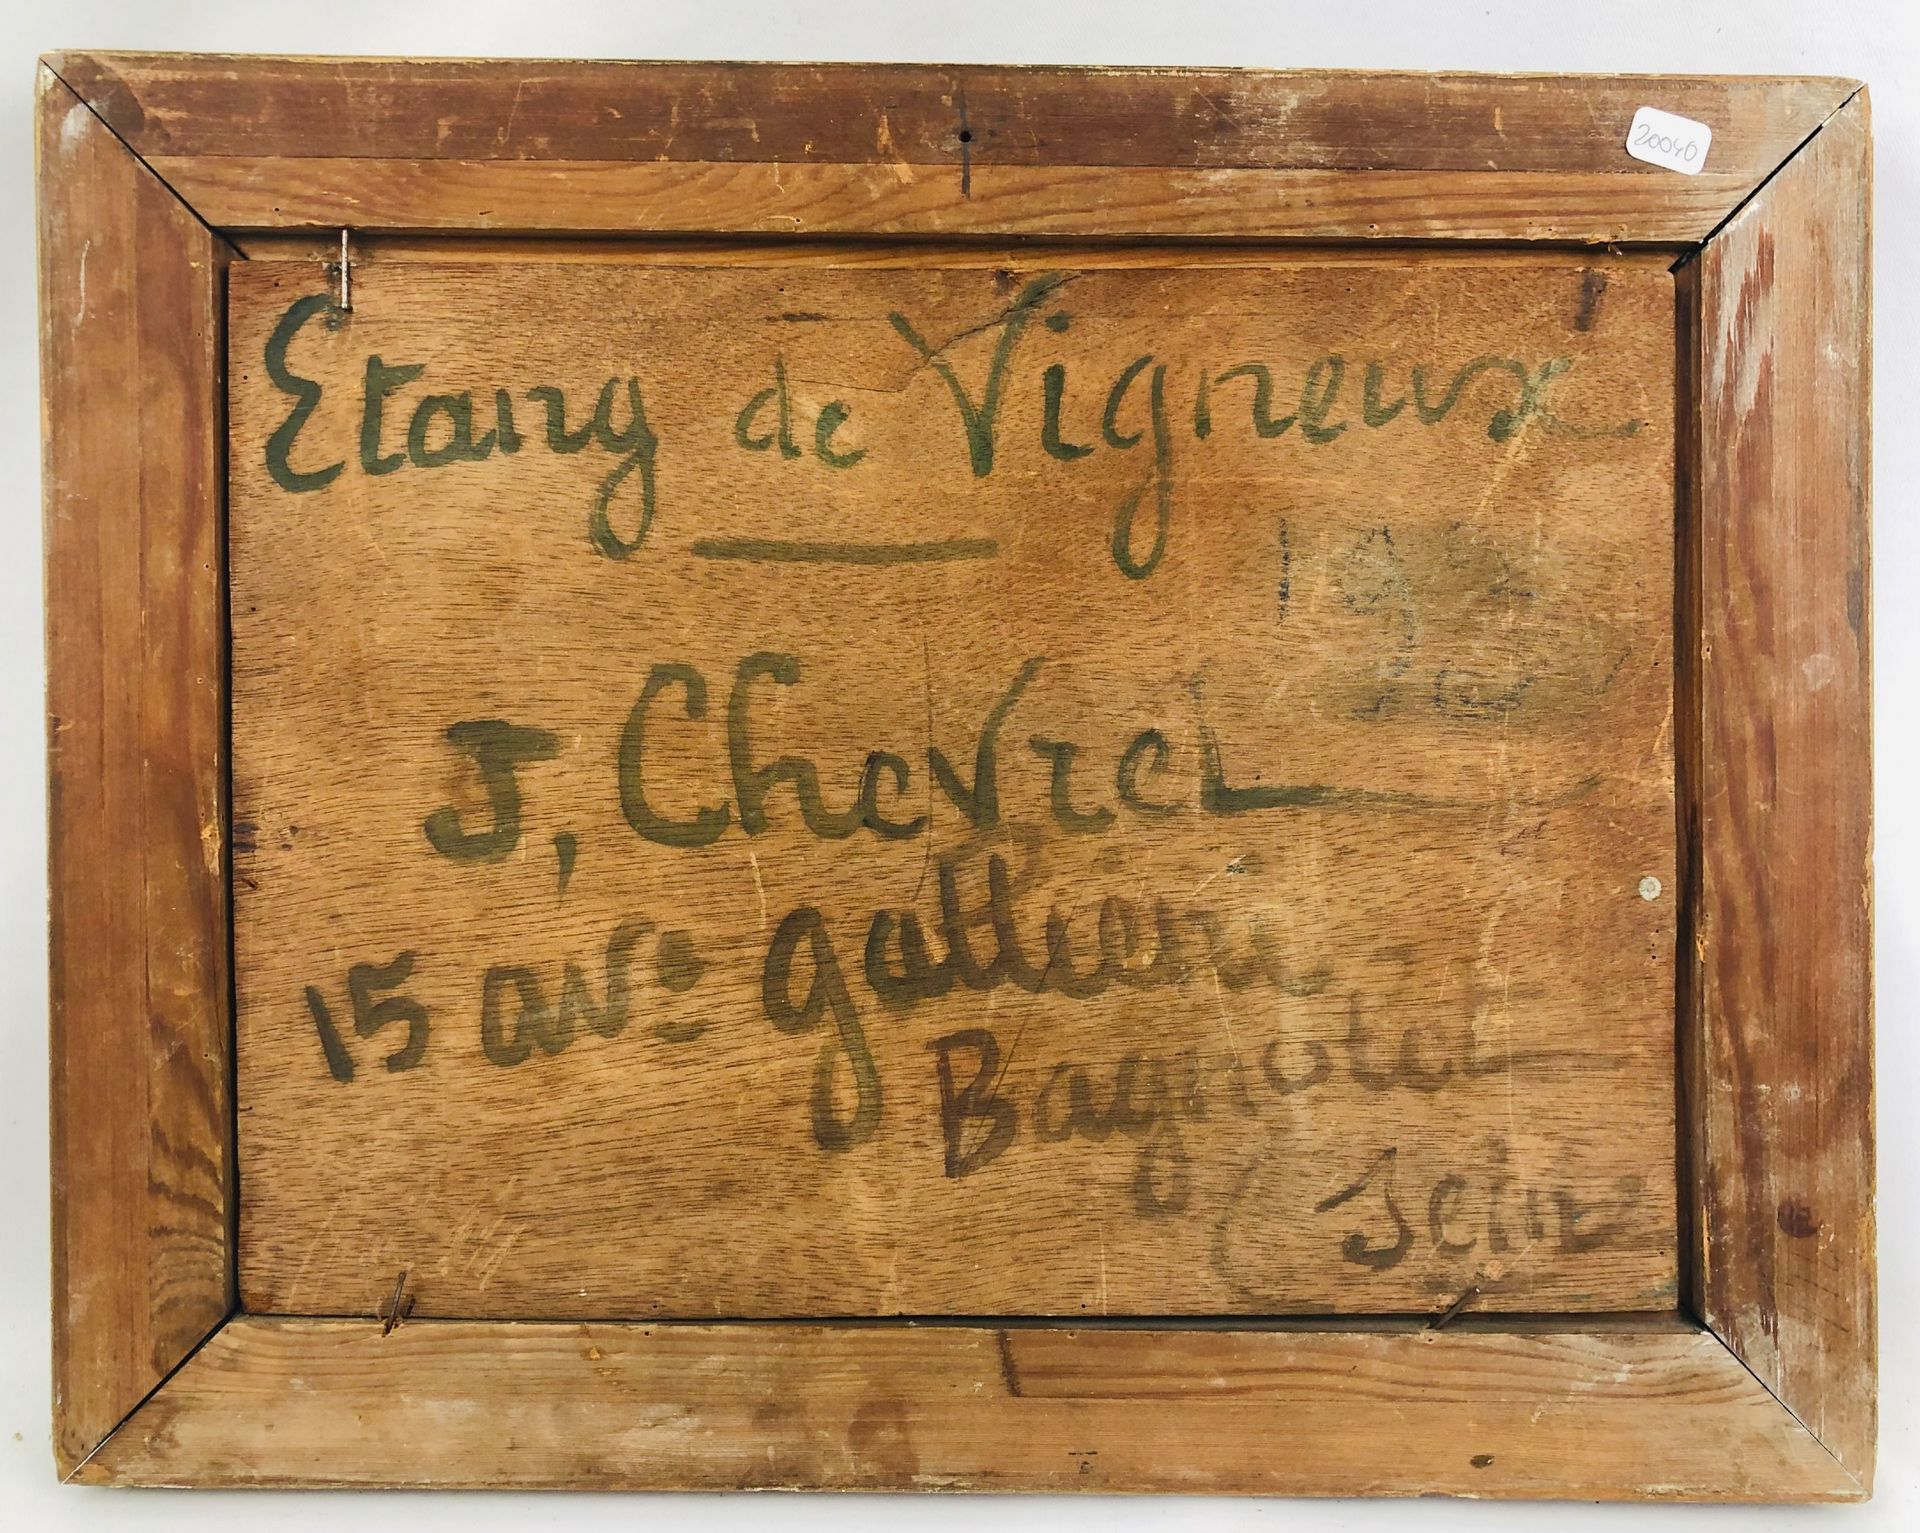 20040
Etang de Vigneux
J, Chevrel
15 ave gallieni
Bagnolet
(Seine